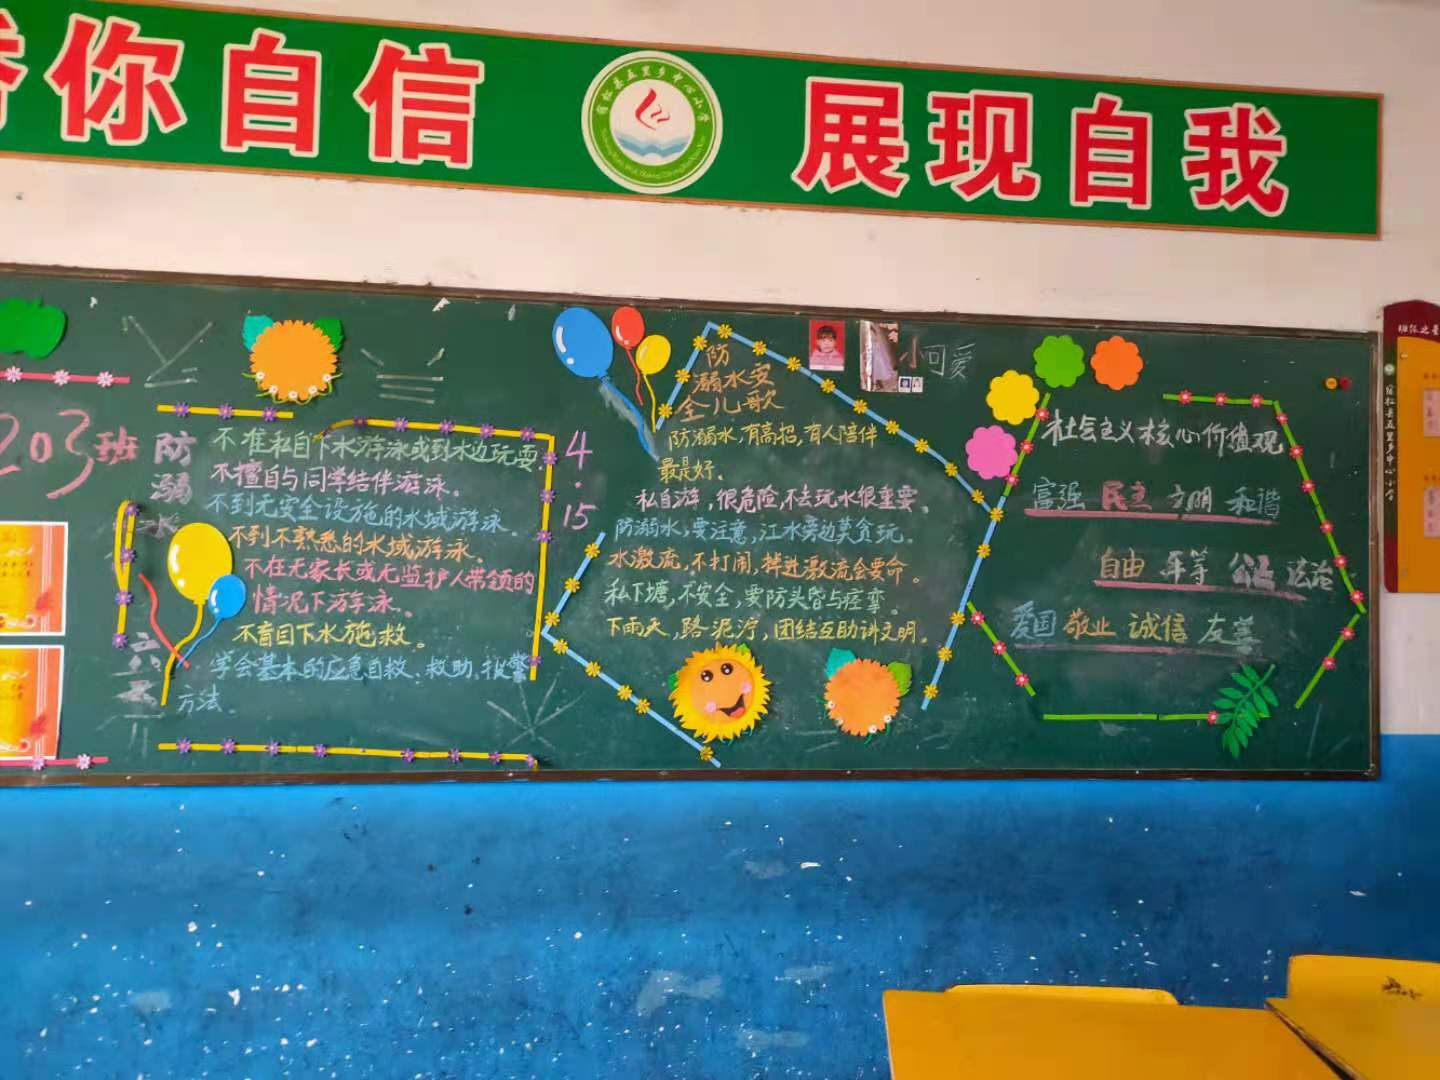 你自信
展现自我
宿松县五里乡中心小学
203班
防溺水
六不
不准私自下水游泳或到水边玩耍.
不擅自与同学结伴游泳.
不到无安全设施的水域游泳.
不到不熟悉的水域游泳.
不在无家长或无监护人带领的
情况下游泳.
不盲目下水施救.
学会基本的应急自救、救助、报警
方法.
4.15
防
溺水安
全儿歌
防溺水,有高招,有人陪伴
最是好.
私自游,很危险,不去玩水很重要.
防溺水,要注意,江水旁边莫贪玩.
水激流,不打闹,掉进激流会要命.
私下塘,不安全,要防头昏与痉挛.
下雨天,路泥泞,团结互助讲文明.
小可爱
社会主义核心价值观
富强 民主 文明 和谐
自由 平等 公正 法治
爱国 敬业 诚信 友善
宿松县五里乡中心小学